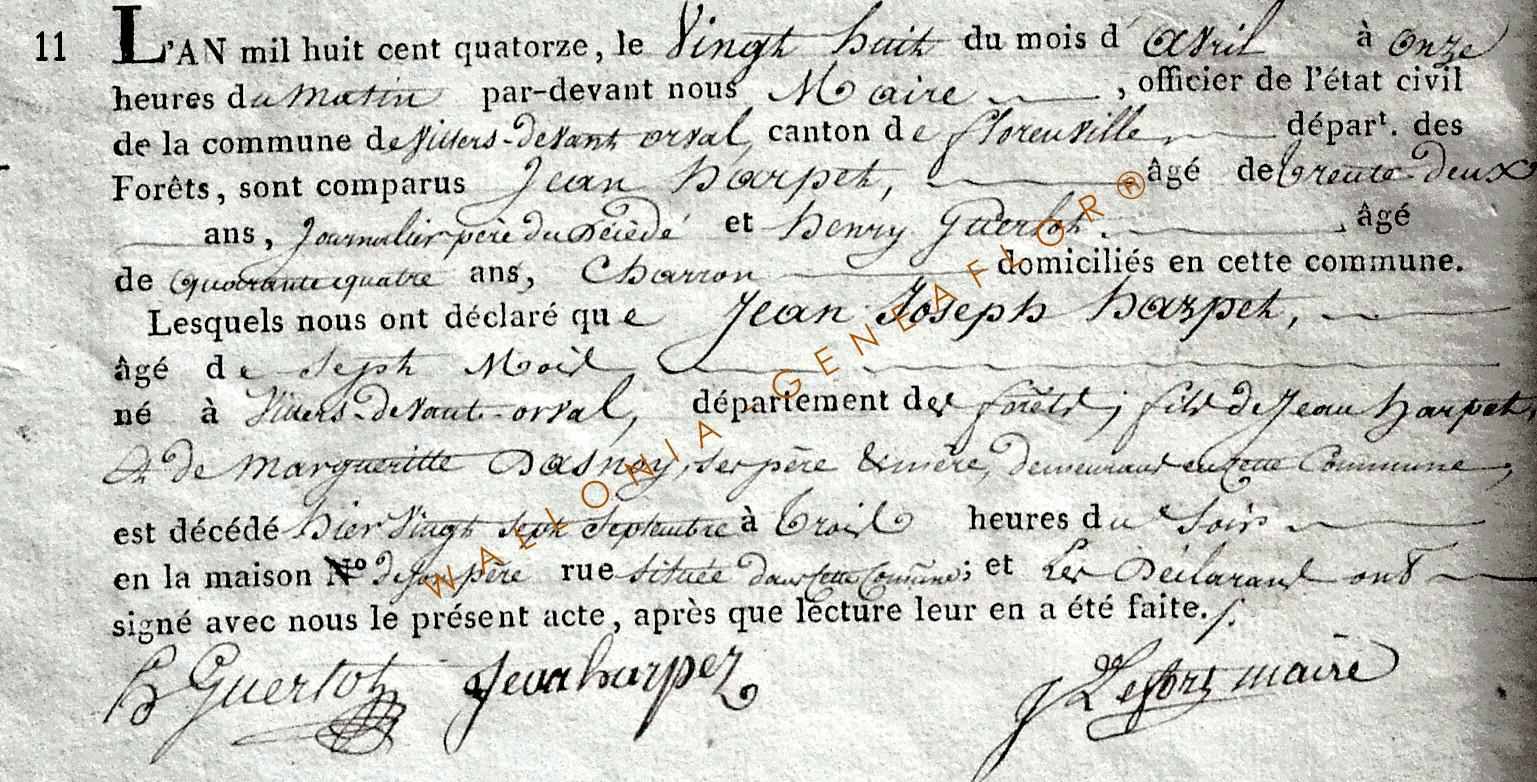 11 L'AN mil huit cent quatorze, le Vingt huit du mois d' avril à onze
heures du Matin par-devant nous Maire, officier de l'état civil
de la commune de Villers-devant orval, canton de florenville, départ. des
Forêts, sont comparus Jean harpet, âgé de trente-deux
ans, Journalier père du Décédé et henry Guerlot, âgé
de quarante quatre ans, Charron domiciliés en cette commune.
Lesquels nous ont déclaré que Jean Joseph harpet,
âgé de sept Mois
né à Villers-devant-orval, département des forêts; fils de Jean harpet,
& de margueritte Dasnoy, ses père & mère, demeurant en cette Commune,
est décédé hier Vingt sept septembre à trois heures du soir
en la maison No de son père rue située dans cette Commune; et Les Déclarant ont
signé avec nous le présent acte, après que lecture leur en a été faite./.
h Guerlot Jean harpez J Lefort maire
WALLONIA-GENEAFLOR®